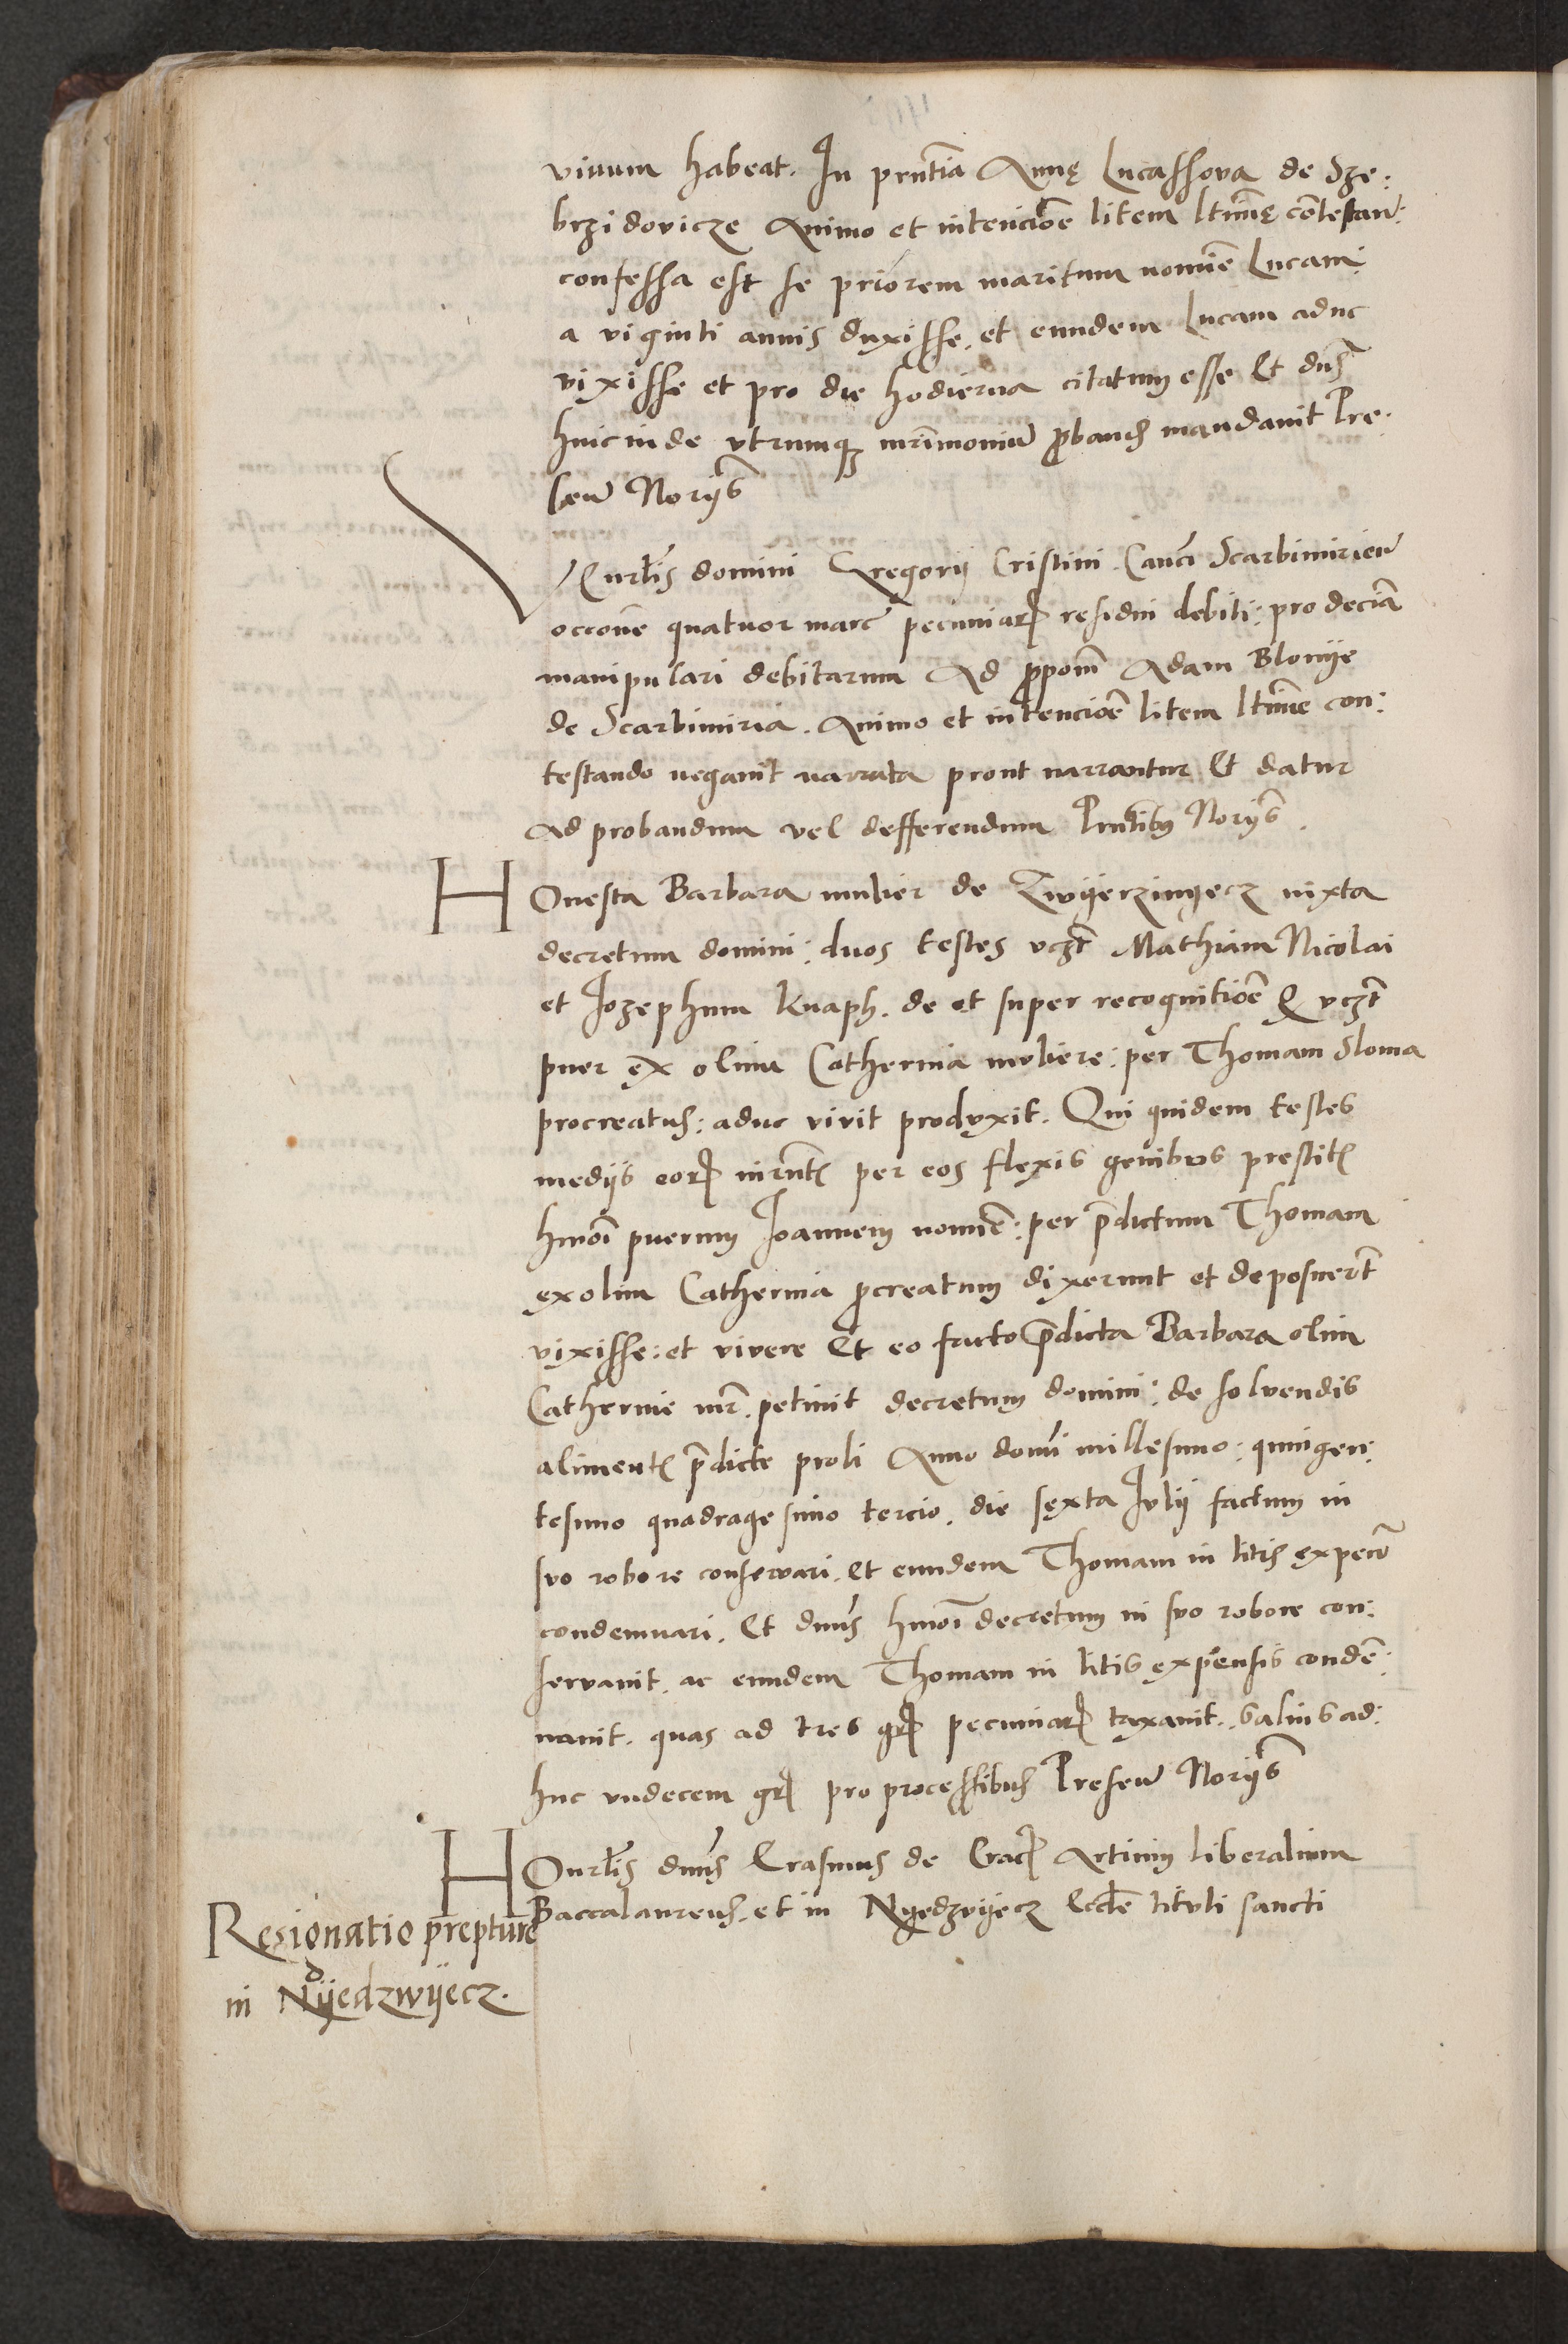 vivum habeat. In pr̄ntia Annę Lucassova de Sze:
brzidovicze Animo et intenciōe litem ltimę contestan:
confessa est se priorem maritum nomīe Lucam
a viginti annis duxisse. et eundem Lucam aduc
vixisse et pro die hodierna citatum esse Et dns
hincinde vtrumqȝ mr̄imoniū ꝓband mandavit Pre:
sen Norijs
Vurlis domini Gregorij Cristini Canci Scarbimirieñ
occōne quatuor marc pecuniarꝝ residui debiti: pro decia
manipulari debitarum Ad ꝓpom Adam Blonije
de Scarbimiria. Animo et intenciōe litem ltime con:
testando negavit narrata prout narrantur Et datur
ad probandum vel defferendum Pr̄ntibus Norijs.
HOnesta Barbara mulier de Zwijerzinyecz iuxta
decretum domini: duos testes vczt Mathiam Nicolai
et Jozephum Knaph. de et super recognitiōe Q vczt
puer ex olim Catherina muliere: per Thomam Sloma
procreatus: aduc vivit produxit. Qui quidem testes
medijs eorꝝ iurnt per eos flexis genibus prestitꝭ
hmōi puerum Joannem nomīe: per p̄dictum Thomam
ex olim Catherina ꝓcreatum dixerunt et deposuert
vixisse: et vivere Et eo facto p̄dicta Barbara olim
Catherine mr̄. petiuit decretum domini: de solvendis
alimentꝭ p̄dicte proli Anno domi millesimo: quingen:
tesimo quadragesimo tercio. die sexta Julij factum in
suo robore conservari. et eundem Thomam in litis expeñ
condemnari. Et dnus hmōi decretum in suo robore con:
servavit. ac eundem Thomam in litis expensis condē:
navit. quas ad tres grꝭ pecuniarꝝ taxavit. salvis ad:
huc vndecem grꝭ pro processibus Preseñ Norijs
HOnrlis dnus Erasmus de Cracꝭ Artium liberalium
Baccalaureus. et in Nyedzvijecz Ecclie tituli sancti
Resignatio prepture
in Nijedzwijecz.